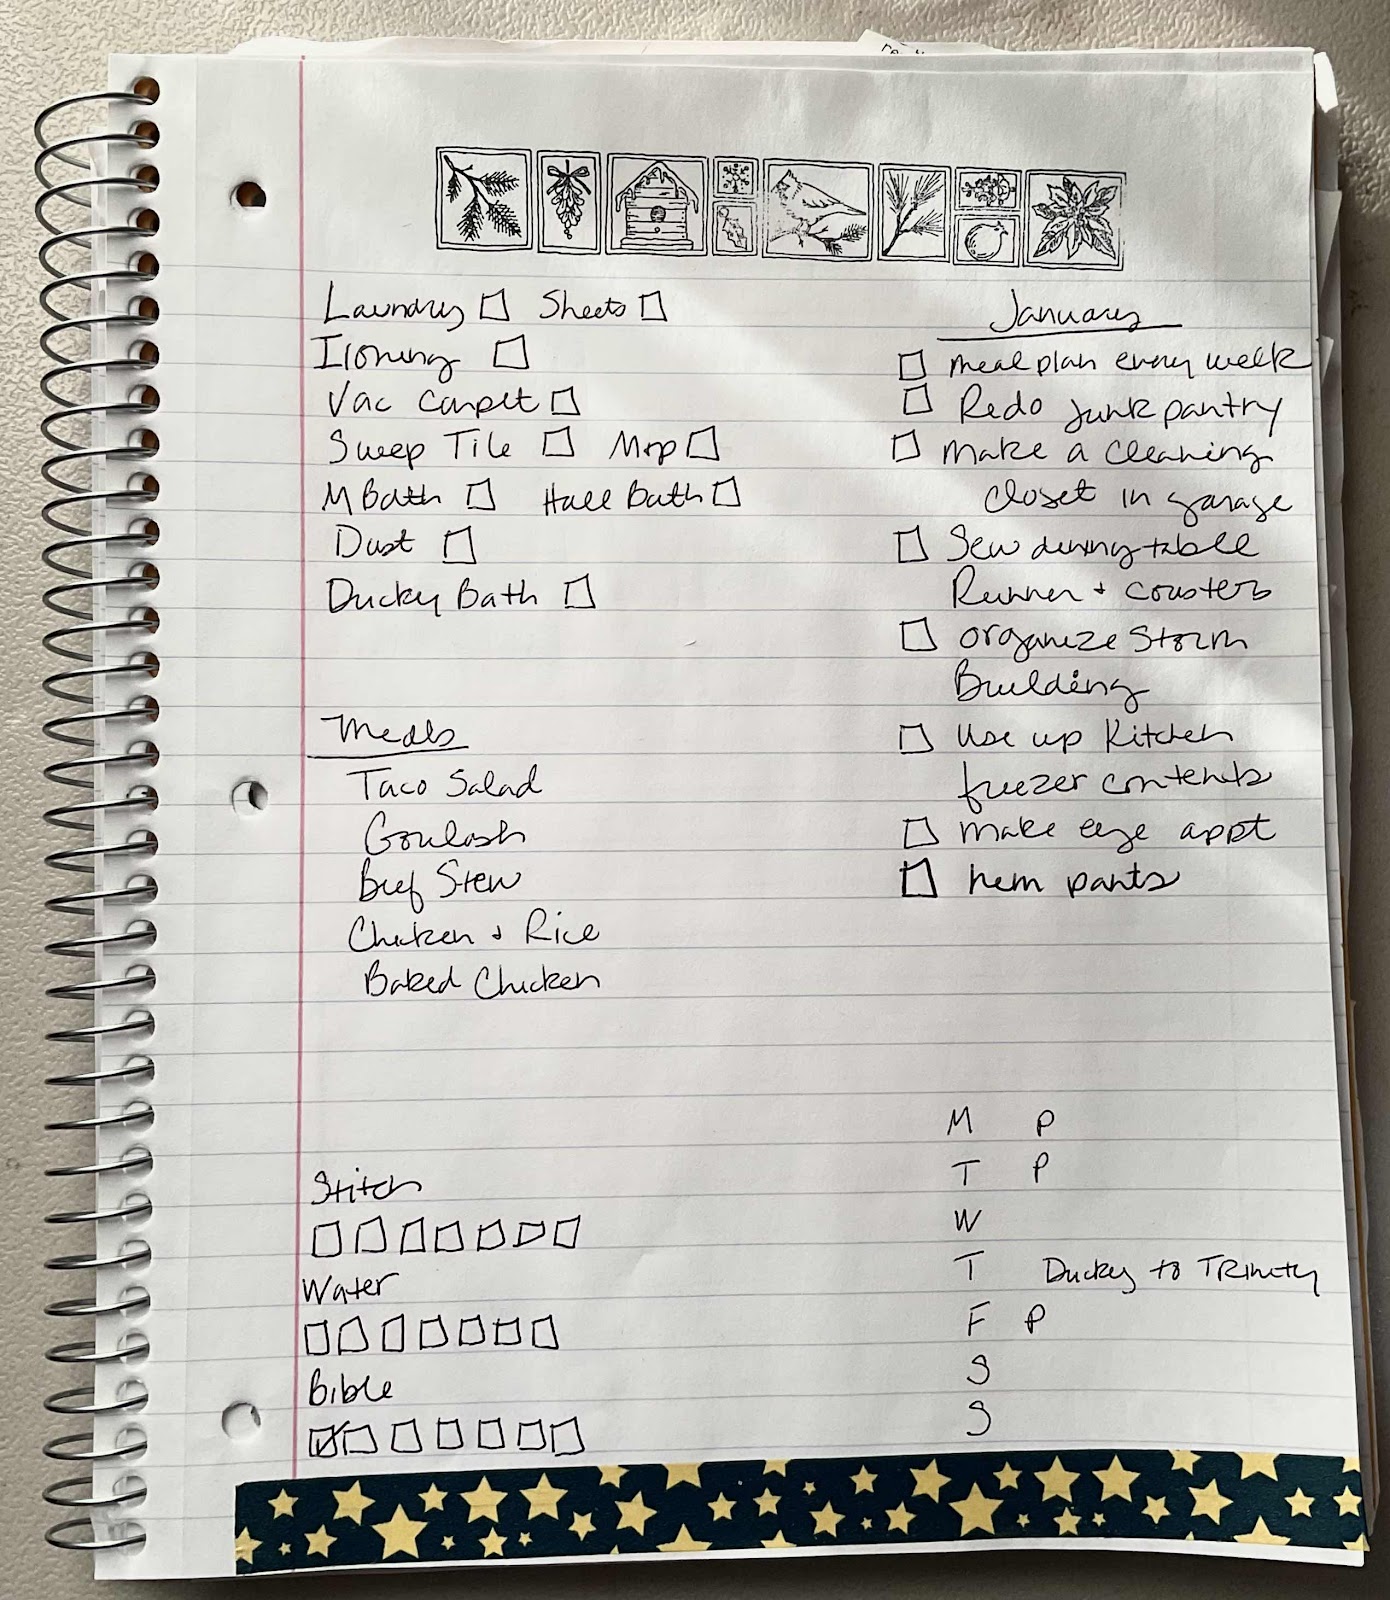 Laundry Sheets
Ironing
Vac Carpet
Sweep Tile Mop
M Bath Hall Bath
Dust
Ducky Bath
Meals
Taco Salad
Goulash
Beef Stew
Chicken + Rice
Baked Chicken
Stitch
Water
Bible
January
meal plan every week
Redo junk pantry
make a cleaning
closet in garage
Sew dining table
Runner + coasters
organize Storm
Building
Use up Kitchen
freezer contents
make eye appt
hem pants
M P
T P
W
T Ducky to Trinity
F P
S
S